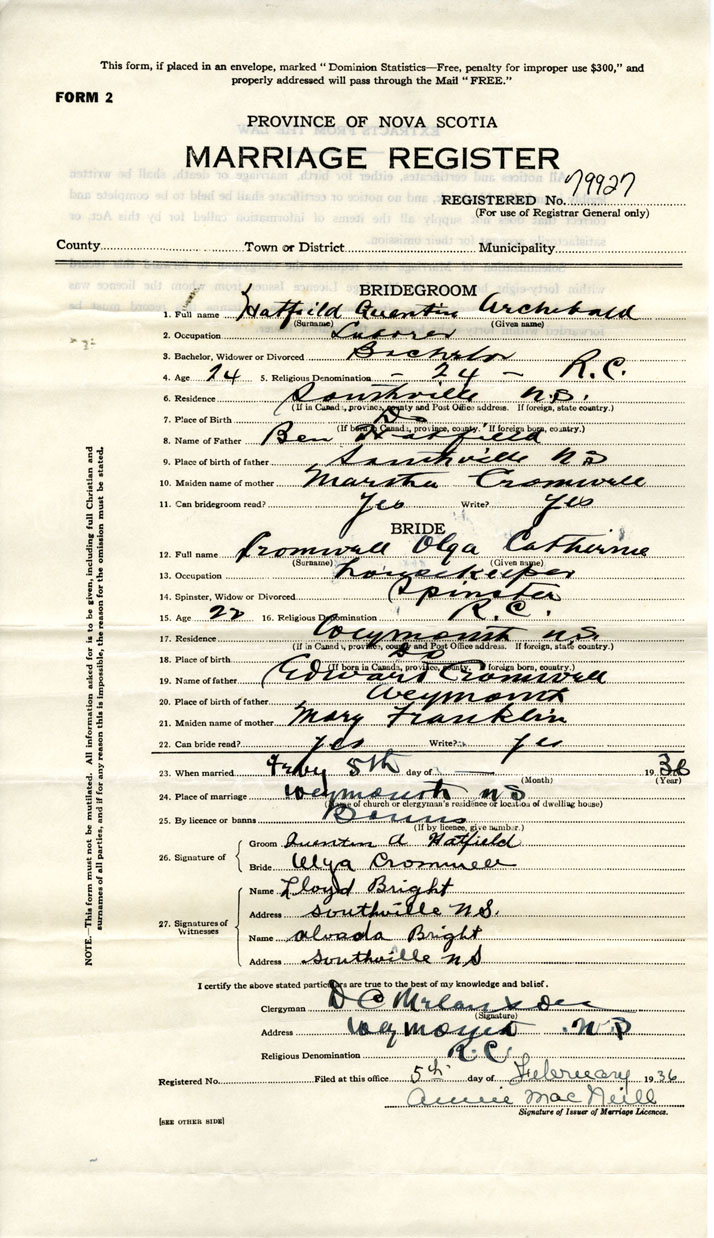 This form, if placed in an envelope, marked "Dominion Statistics—Free, penalty for improper use $300," and
properly addressed will pass through the Mail "FREE."
FORM 2
PROVINCE OF NOVA SCOTIA
MARRIAGE REGISTER
REGISTERED No. 79927
(For use of Registrar General only)
County Town or District Municipality
BRIDEGROOM
1. Full name Hatfield Quentin Archibald
(Surname) (Given name)
2. Occupation Laborer
3. Bachelor, Widower or Divorced Bachelor
4. Age 24 5. Religious Denomination - 24 - R.C.
6. Residence Southville N.S.
(If in Canada, province, county and Post Office address. If foreign, state country.)
7. Place of Birth Do
(If born in Canada, province, county. If foreign born, country.)
8. Name of Father Ben Hatfield
9. Place of birth of father Southville NS
10. Maiden name of mother Martha Cromwell
11. Can bridegroom read? Yes Write? Yes
BRIDE
12. Full name Cromwell Olga Catherine
(Surname) (Given name)
13. Occupation housekeeper
14. Spinster, Widow or Divorced Spinster
15. Age 22 16. Religious Denomination R.C.
17. Residence Weymouth N.S.
(If in Canada, province, county and Post Office address. If foreign, state country.)
18. Place of birth Do
(If born in Canada, province, county. If foreign born, country.)
19. Name of father Edward Cromwell
20. Place of birth of father Weymouth
21. Maiden name of mother Mary Franklin
22. Can bride read? Yes Write? Yes
23. When married Feby 5th day of 1936
(Month) (Year)
24. Place of marriage Weymouth N S
(Name of church or clergyman's residence or location of dwelling house)
25. By licence or banns Banns
(If by licence, give number.)
26. Signature of Groom Quentin A Hatfield
Bride Olga Cromwell
27. Signatures of Witnesses Name Lloyd Bright
Address Southville N.S.
Name Alvada Bright
Address Southville N S
I certify the above stated particulars are true to the best of my knowledge and belief.
Clergyman D C
(Signature)
Address Weymouth N.S
Religious Denomination R.C.
Registered No. Filed at this office 5th day of February 1936
Annie MacNeill
Signature of Issuer of Marriage Licences.
[SEE OTHER SIDE]
NOTE.—This form must not be mutilated. All information asked for is to be given, including full Christian and
surnames of all parties, and if for any reason this is impossible, the reason for the omission must be stated.